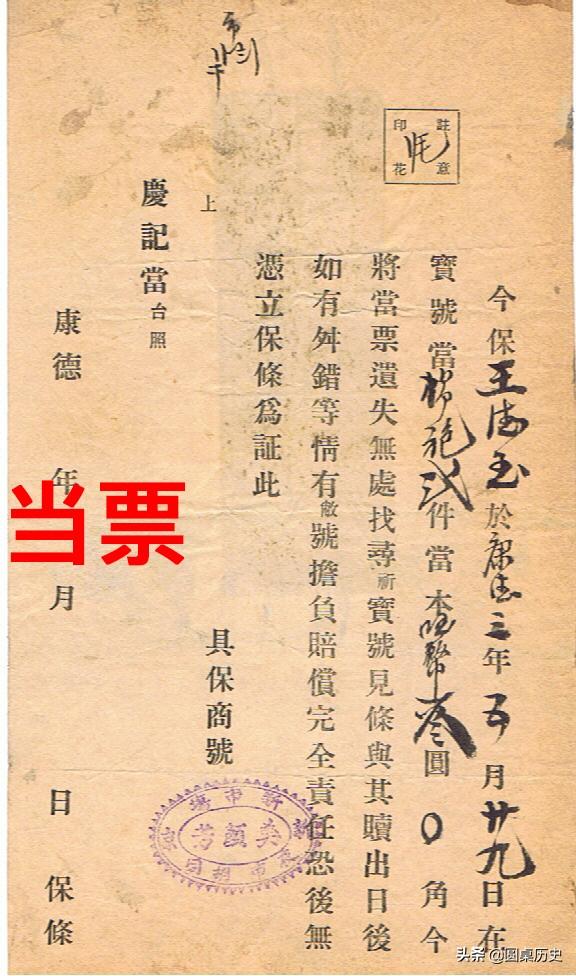 註意
印花
今保王海玉於康德三年五月廿九日在
寶號當棉袍弍件當本國幣叁圓0角今
將當票遺失無處找尋祈寶號見條與其贖出日後
如有舛錯等情有敝號擔負賠償完全責任恐後無
憑立保條爲証此
上
慶記當台照
具保商號
康德 年 月 日 保條
当票
新市場
頭條 @圆桌历史